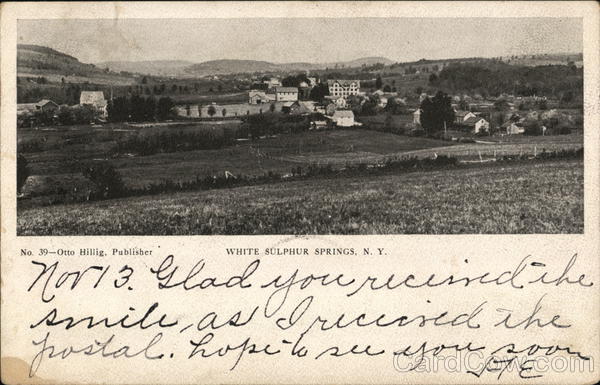 No. 39—Otto Hillig, Publisher
WHITE SULPHUR SPRINGS, N. Y.
Nov 13. Glad you received the
smile, as I received the
postal. hope to see you soon
CardCow.com